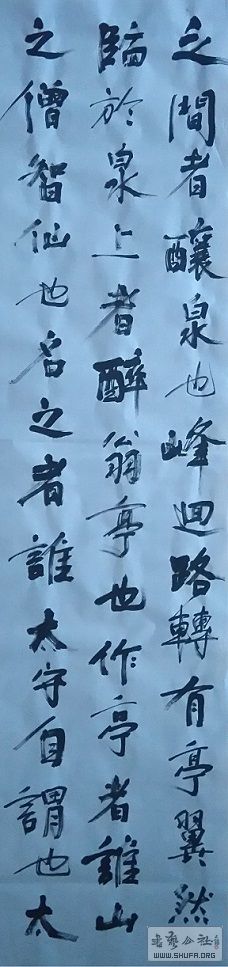 之間者釀泉也峰迴路轉有亭翼然
臨於泉上者醉翁亭也作亭者誰山
之僧智仙也名之者誰太守自謂也太
書藝公社
WWW.SHUFA.ORG